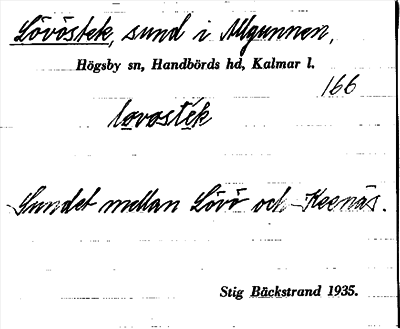 Lövöstek, sund i Allgunnen,
Högsby sn, Handbörds hd, Kalmar l.
166
lovosték
Sundet mellan Lövö och Keenäs.
Stig Bäckstrand 1935.